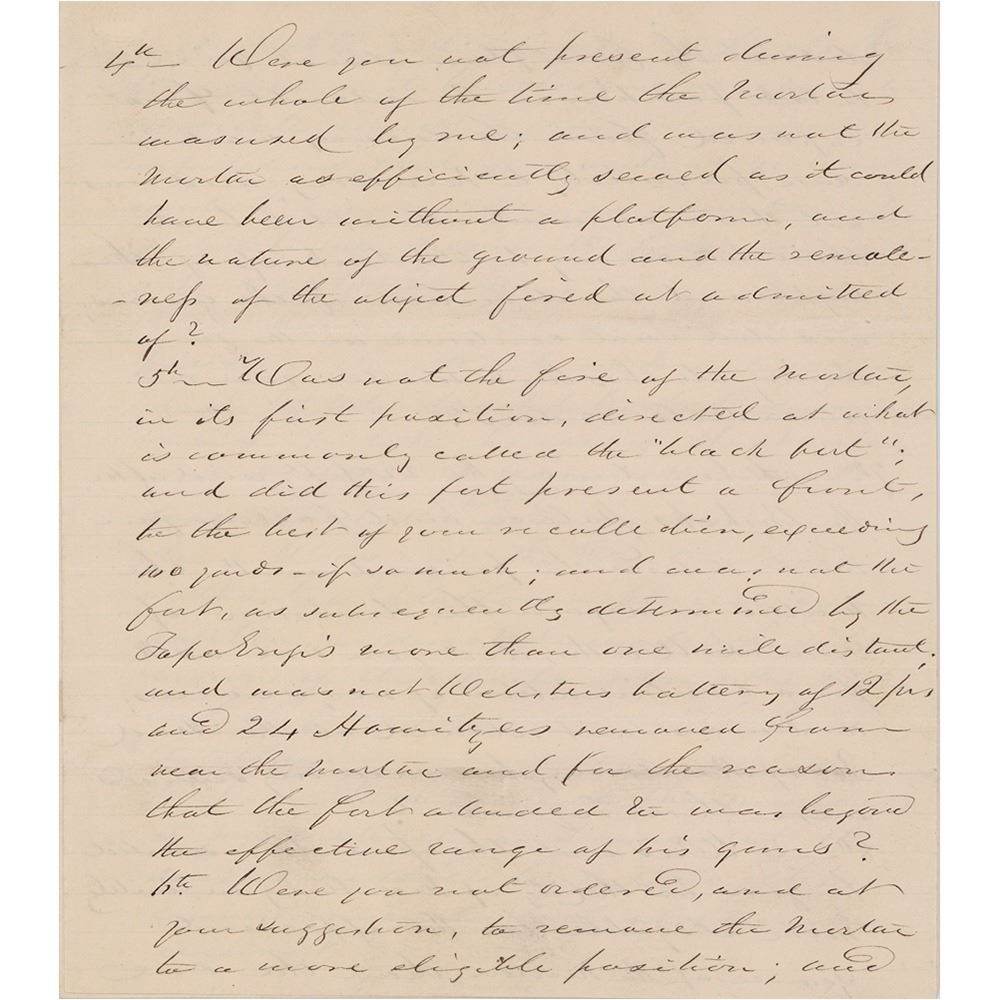 4th Were you not present during
the whole of the time the Mortar
was used by me; and was not the
Mortar as efficiently served as it could
have been without a platform, and
the nature of the ground and the remote-
-ness of the object fired at admitted
of?
5th Was not the fire of the Mortar,
in its first position, directed at what
is commonly called the "black fort";
and did this fort present a front,
to the best of your recollection, exceeding
100 yards - if so much; and was not the
fort, as subsequently determined by the
Topo Eng's more than one mile distant;
and was not Websters battery of 12 prs
and 24 Howitzers removed from
near the mortar and for the reason
that the fort alluded to was beyond
the effective range of his guns?
6th Were you not ordered, and at
your suggestion, to remove the Mortar
to a more eligible position; and